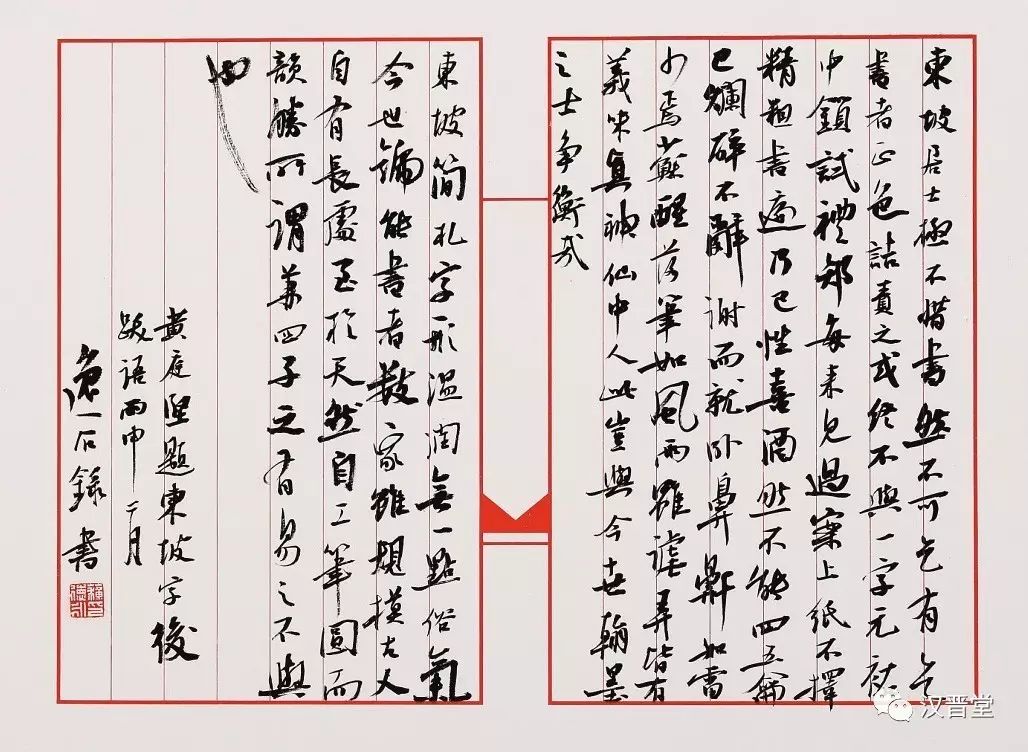 東坡居士極不惜書然不可乞有乞
書者正色詰責之或終不與一字元祐
中鎖試禮部每來見過案上紙不擇
精粗書遍乃已性喜酒然不能四五龠
已爛醉不辭謝而就臥鼻鼾如雷
少焉蘇醒落筆如風雨雖謔弄皆有
義味真神仙中人此豈與今世翰墨
之士爭衡哉
東坡簡札字形溫潤無一點俗氣
今世號能書者數家雖規摸古人
自有長處至於天然自工筆圓而
韻勝所謂兼四子之有易之不與
也
黃庭堅題東坡字後
跋語丙申二月
一石錄書
汉晋堂